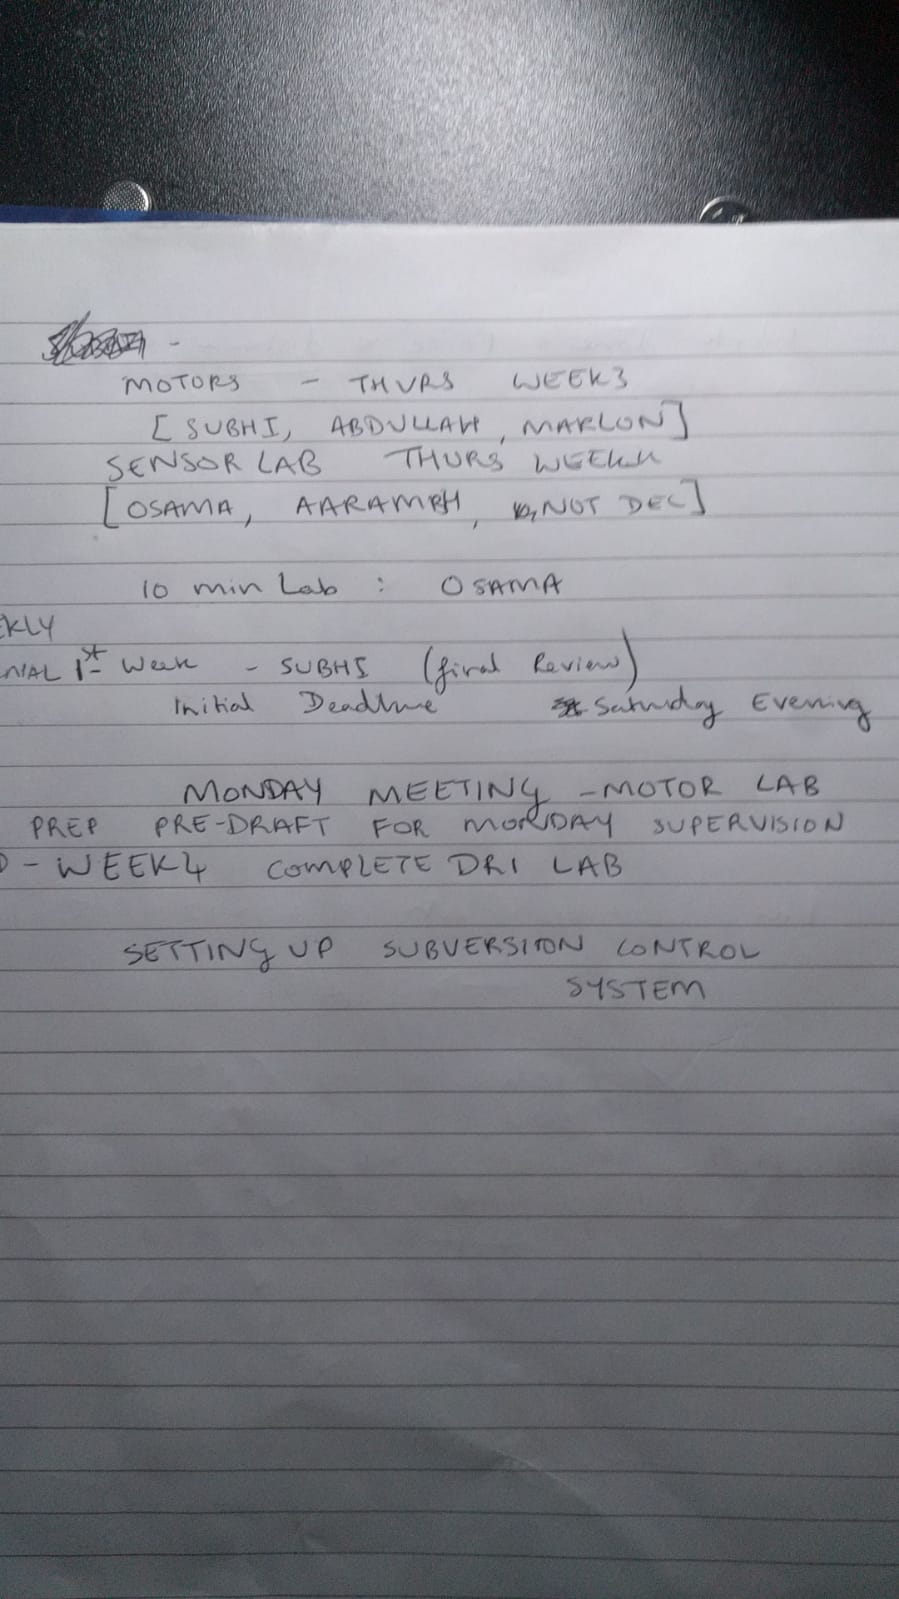 MOTORS - THURS WEEK3
[SUBHI, ABDULLAH, MARLON]
SENSOR LAB THURS
[OSAMA, AARAMBH, NOT DEC]
10 min Lab : OSAMA
EKLY
NIAL 1st Week - SUBHI (final Review)
Initial Deadline Saturday Evening
MONDAY MEETING - MOTOR LAB
PREP PRE-DRAFT FOR MONDAY SUPERVISION
- WEEK4 COMPLETE DRI LAB
SETTING UP SUBVERSION CONTROL
SYSTEM